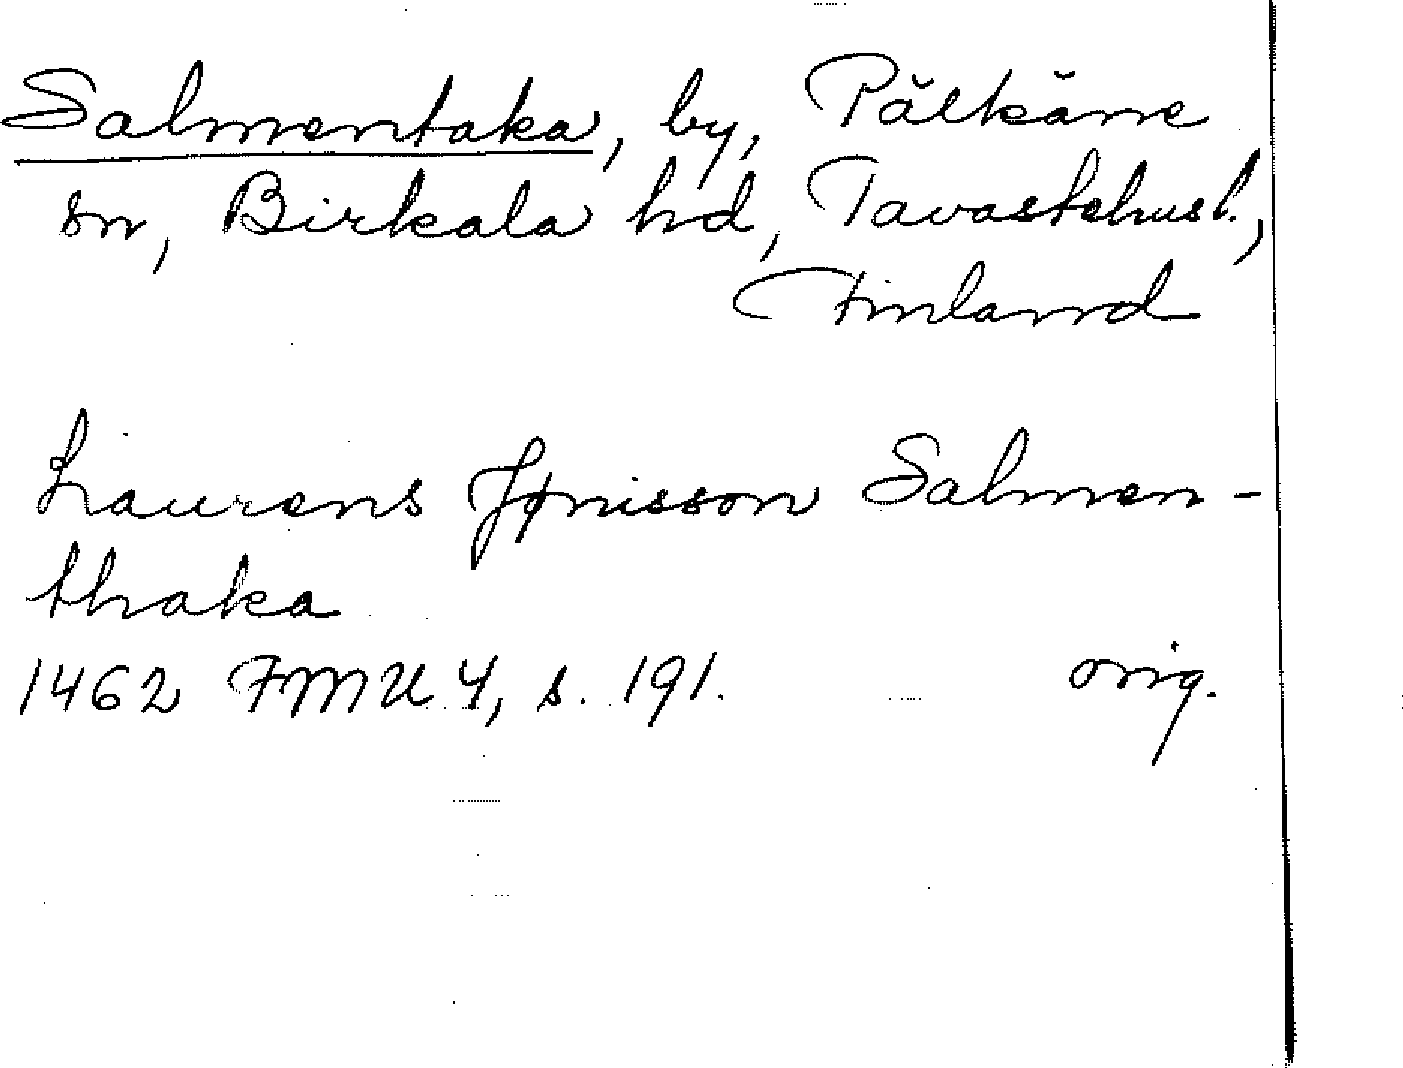 Salmentaka, by, Pälkäne
sn, Birkala hd, Tavastehus l.,
Finland
Laurens Jønisson Salmen-
thaka
1462 FMU 4, s. 191. orig.